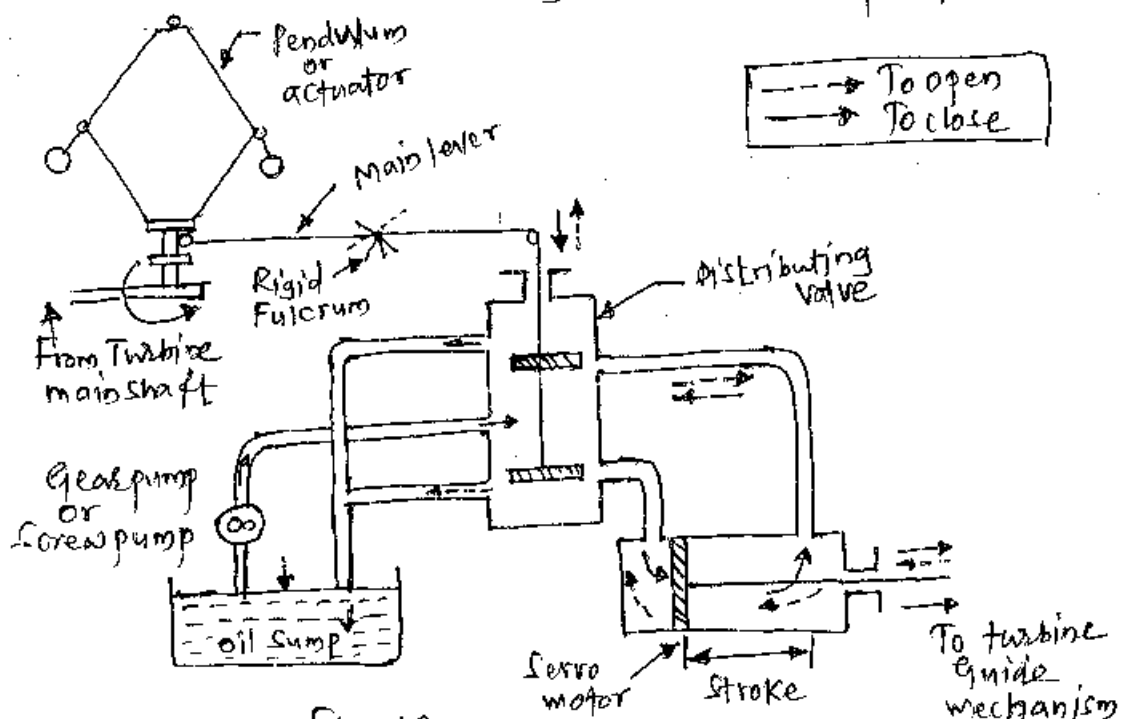 Pendulum
or
actuator
To open
To close
Main lever
Rigid
Fulcrum
Distributing
valve
From Turbine
main shaft
Gear pump
or
Screw pump
oil Sump
Servo
motor
Stroke
To turbine
Guide
mechanism